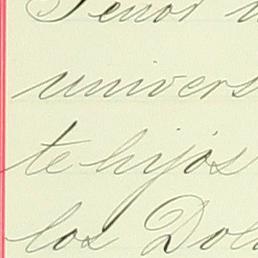 Señor
univers
te hijos
los Dol